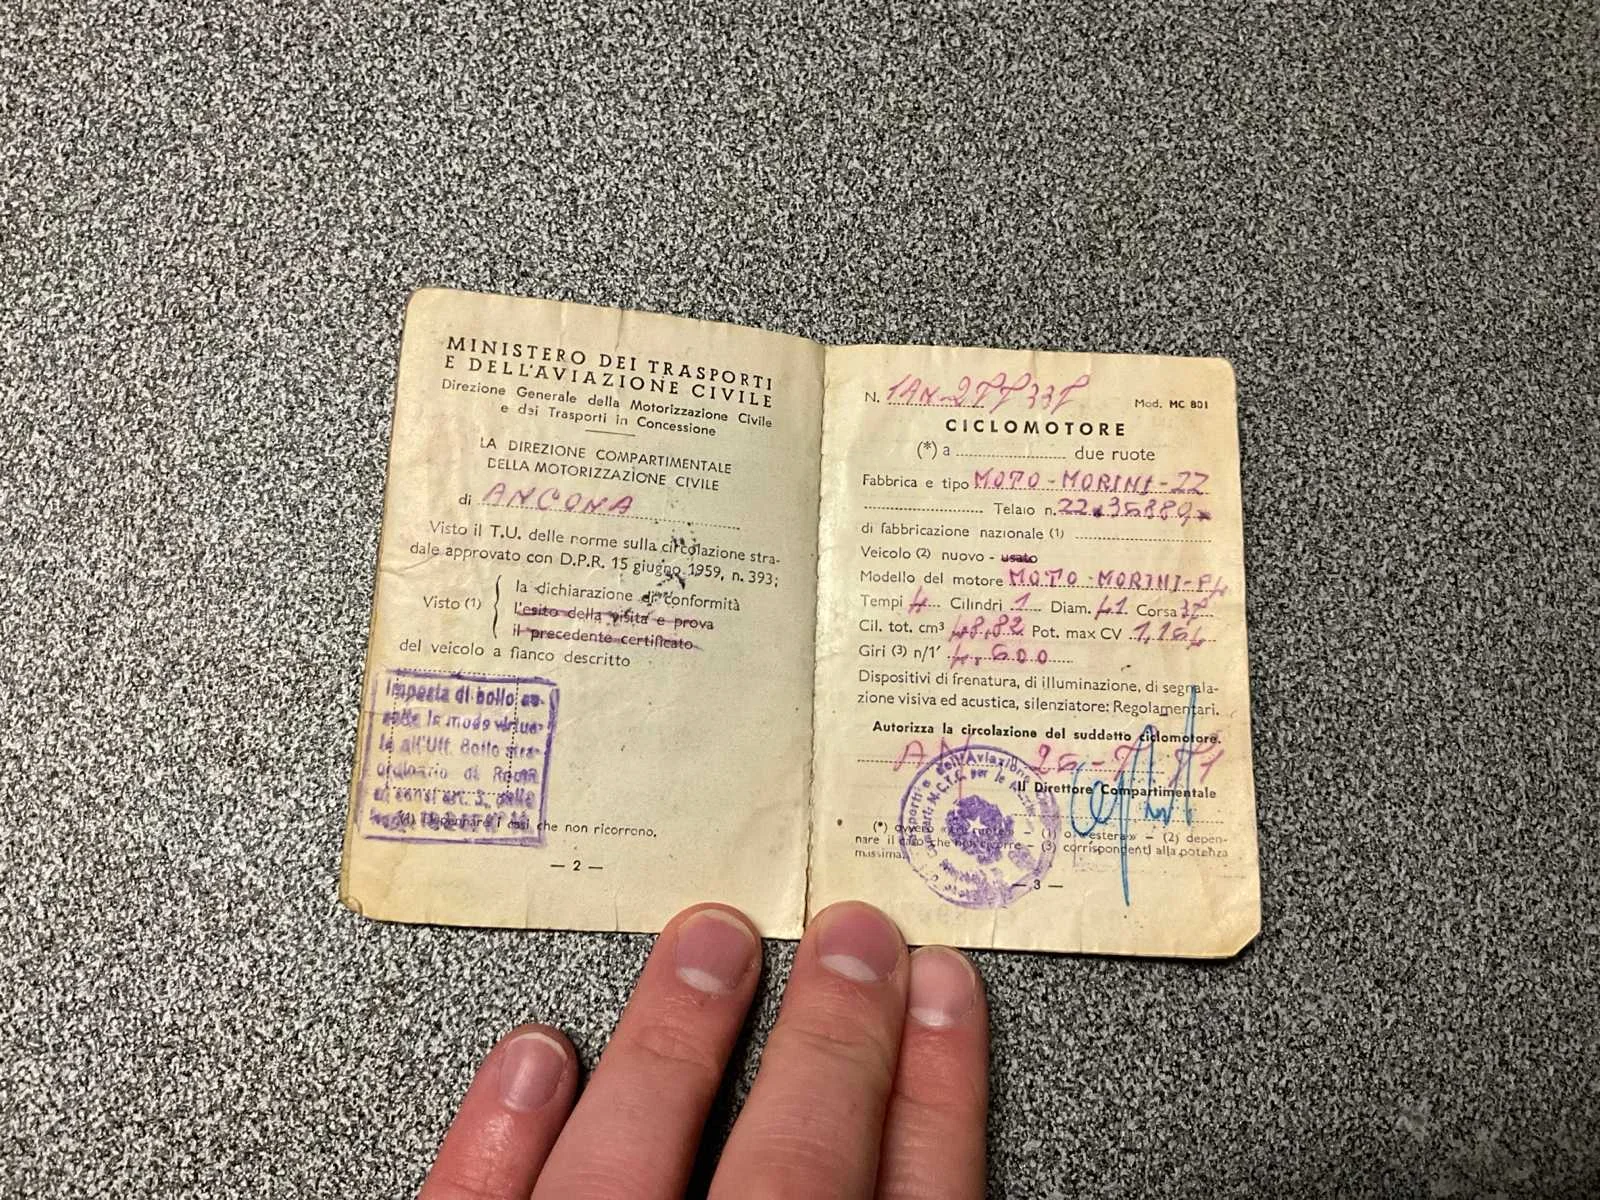 MINISTERO DEI TRASPORTI
E DELL'AVIAZIONE CIVILE
Direzione Generale della Motorizzazione Civile
e dei Trasporti in Concessione
LA DIREZIONE COMPARTIMENTALE
DELLA MOTORIZZAZIONE CIVILE
di ANCONA
Visto il T.U. delle norme sulla circolazione stra-
dale approvato con D.P.R. 15 giugno 1959, n. 393;
Visto (1)
la dichiarazione di conformità
l'esito della visita e prova
il precedente certificato
del veicolo a fianco descritto
Imposta di bollo as-
solta in modo virtua-
le all'Uff. Bollo stra-
ordinario di Roma
ai sensi art. 3, della
(1) Depennare i casi che non ricorrono.
— 2 —
N. Mod. MC 801
CICLOMOTORE
(*) a due ruote
Fabbrica e tipo MOTO-MORINI-ZZ
Telaio n.
di fabbricazione nazionale (1)
Veicolo (2) nuovo - usato
Modello del motore MOTO-MORINI-
Tempi 4 Cilindri 1 Diam. 41 Corsa 37
Cil. tot. cm³ 48,82 Pot. max CV 1,164
Giri (3) n/1' 4.600
Dispositivi di frenatura, di illuminazione, di segnala-
zione visiva ed acustica, silenziatore: Regolamentari.
Autorizza la circolazione del suddetto ciclomotore.
AN 26-7-71
Il Direttore Compartimentale
(*) ovvero «tre ruote» – (1) o «estera» – (2) depen-
nare il caso che non ricorre – (3) corrispondenti alla potenza
massima.
— 3 —